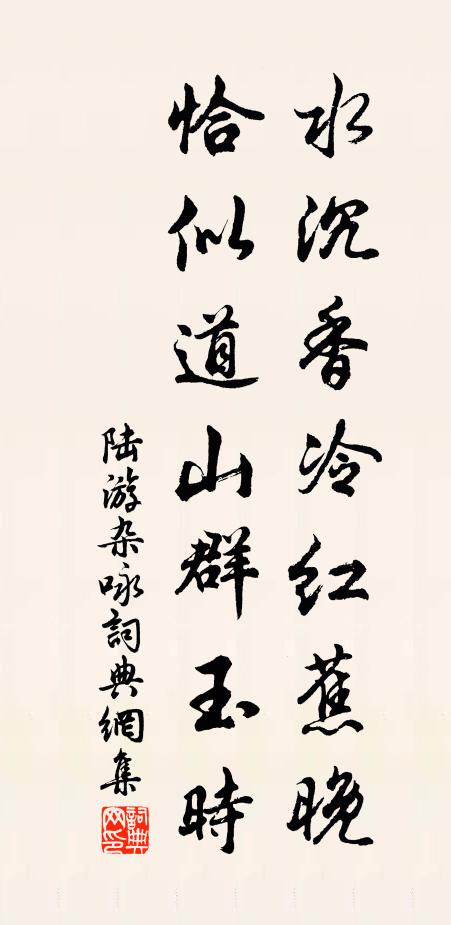 水沉香冷红蕉晚
恰似道山群玉時
陆游杂咏詞典網集
詞典
网印